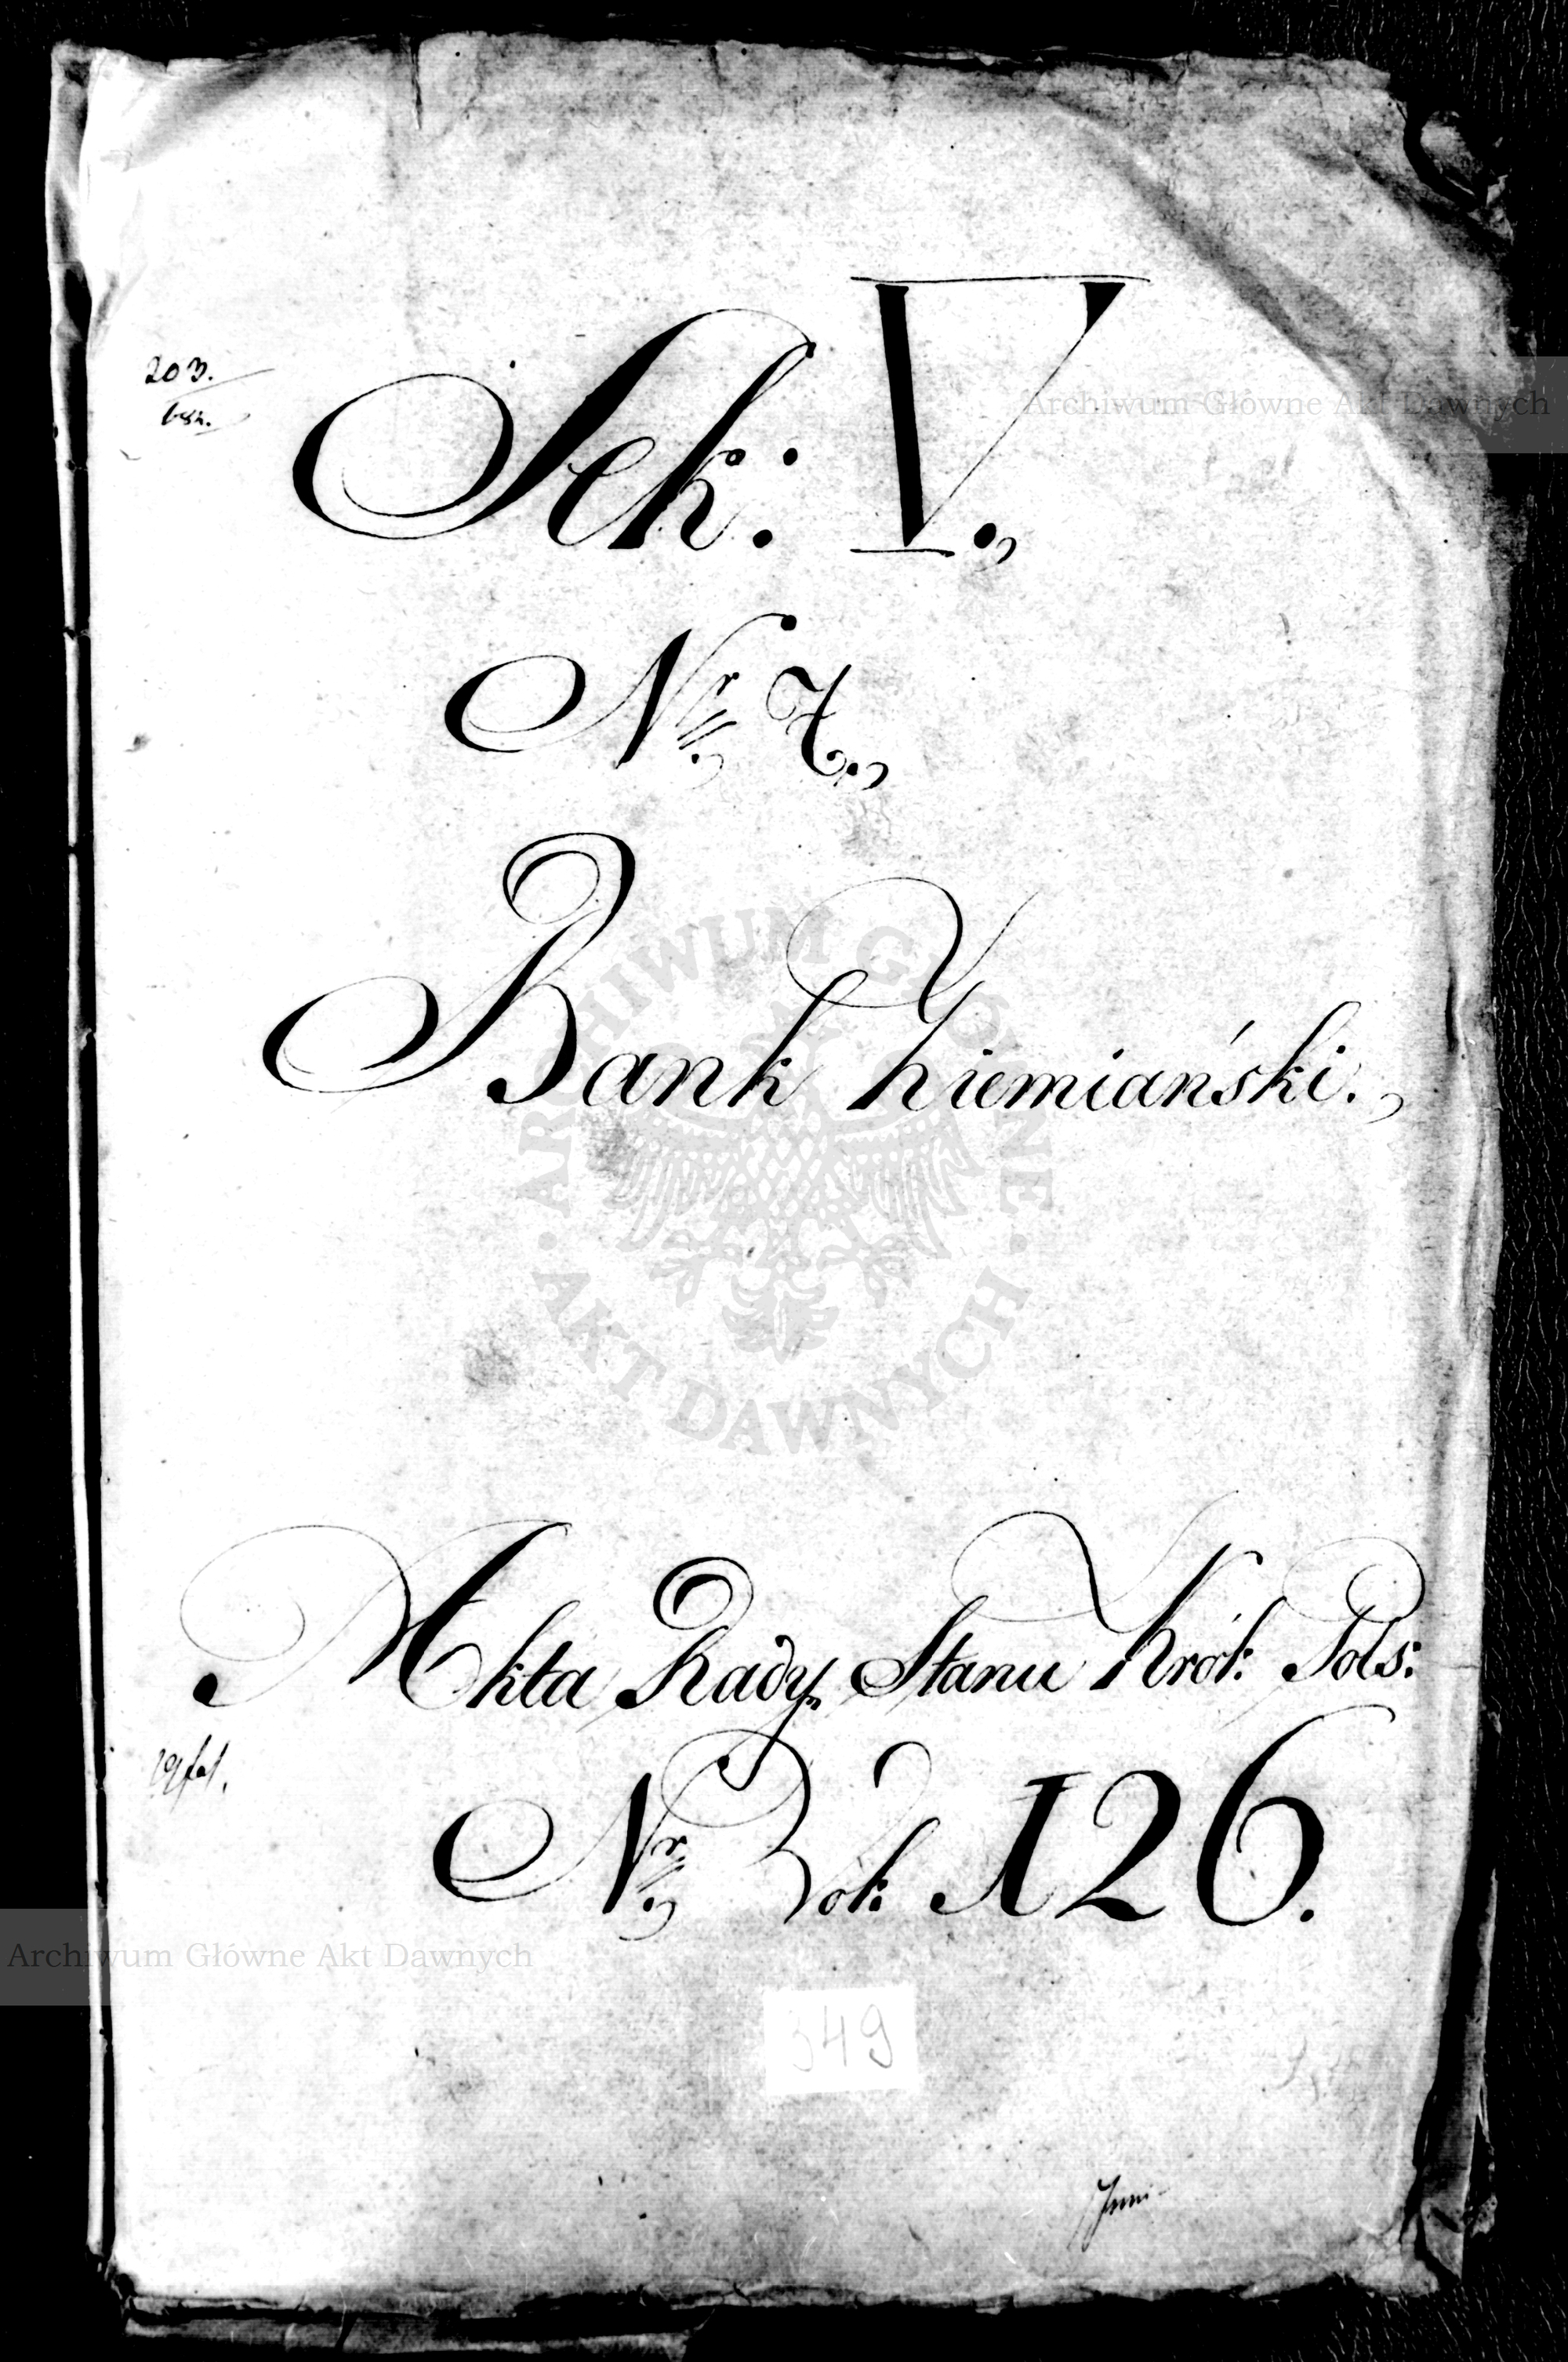 203.
Sek: V.
Archiwum Główne Akt Dawnych
Nr 7.
Bank Ziemiański.
ARCHIWUM GŁÓWNE AKT DAWNYCH
Akta Rady Stanu Król: Pols:
Nr Rok: 126.
Archiwum Główne Akt Dawnych
349